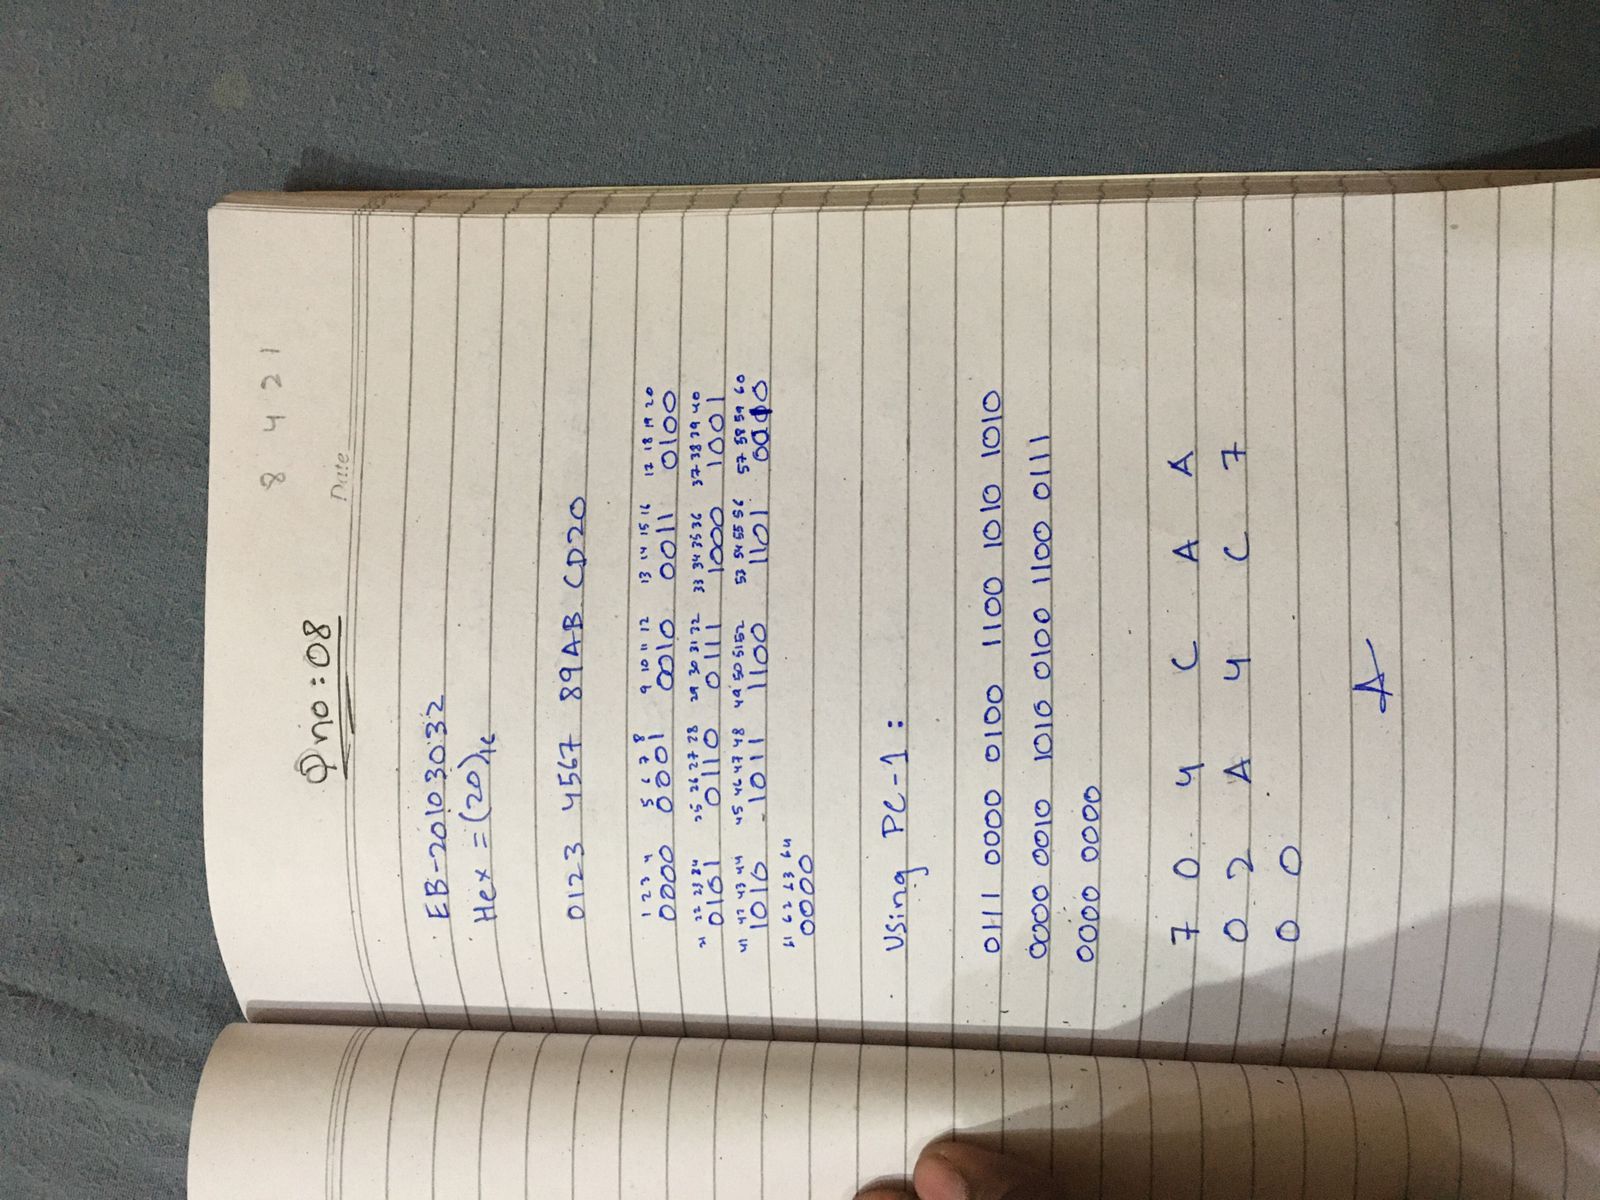 8 4 2 1
Date
Qno:08
EB-20103032
Hex = (20)16
0123 4567 89AB CD20
1 2 3 4 5 6 7 8 9 10 11 12 13 14 15 16 17 18 19 20
0000 0001 0010 0011 0100
21 22 23 24 25 26 27 28 29 30 31 32 33 34 35 36 37 38 39 40
0101 0110 0111 1000 1001
41 42 43 44 45 46 47 48 49 50 51 52 53 54 55 56 57 58 59 60
1010 1011 1100 1101 0010
61 62 63 64
0000
Using PC-1:
0111 0000 0100 1100 1010 1010
0000 0010 1010 0100 1100 0111
0000 0000
7 0 4 C A A
0 2 A 4 C 7
0 0